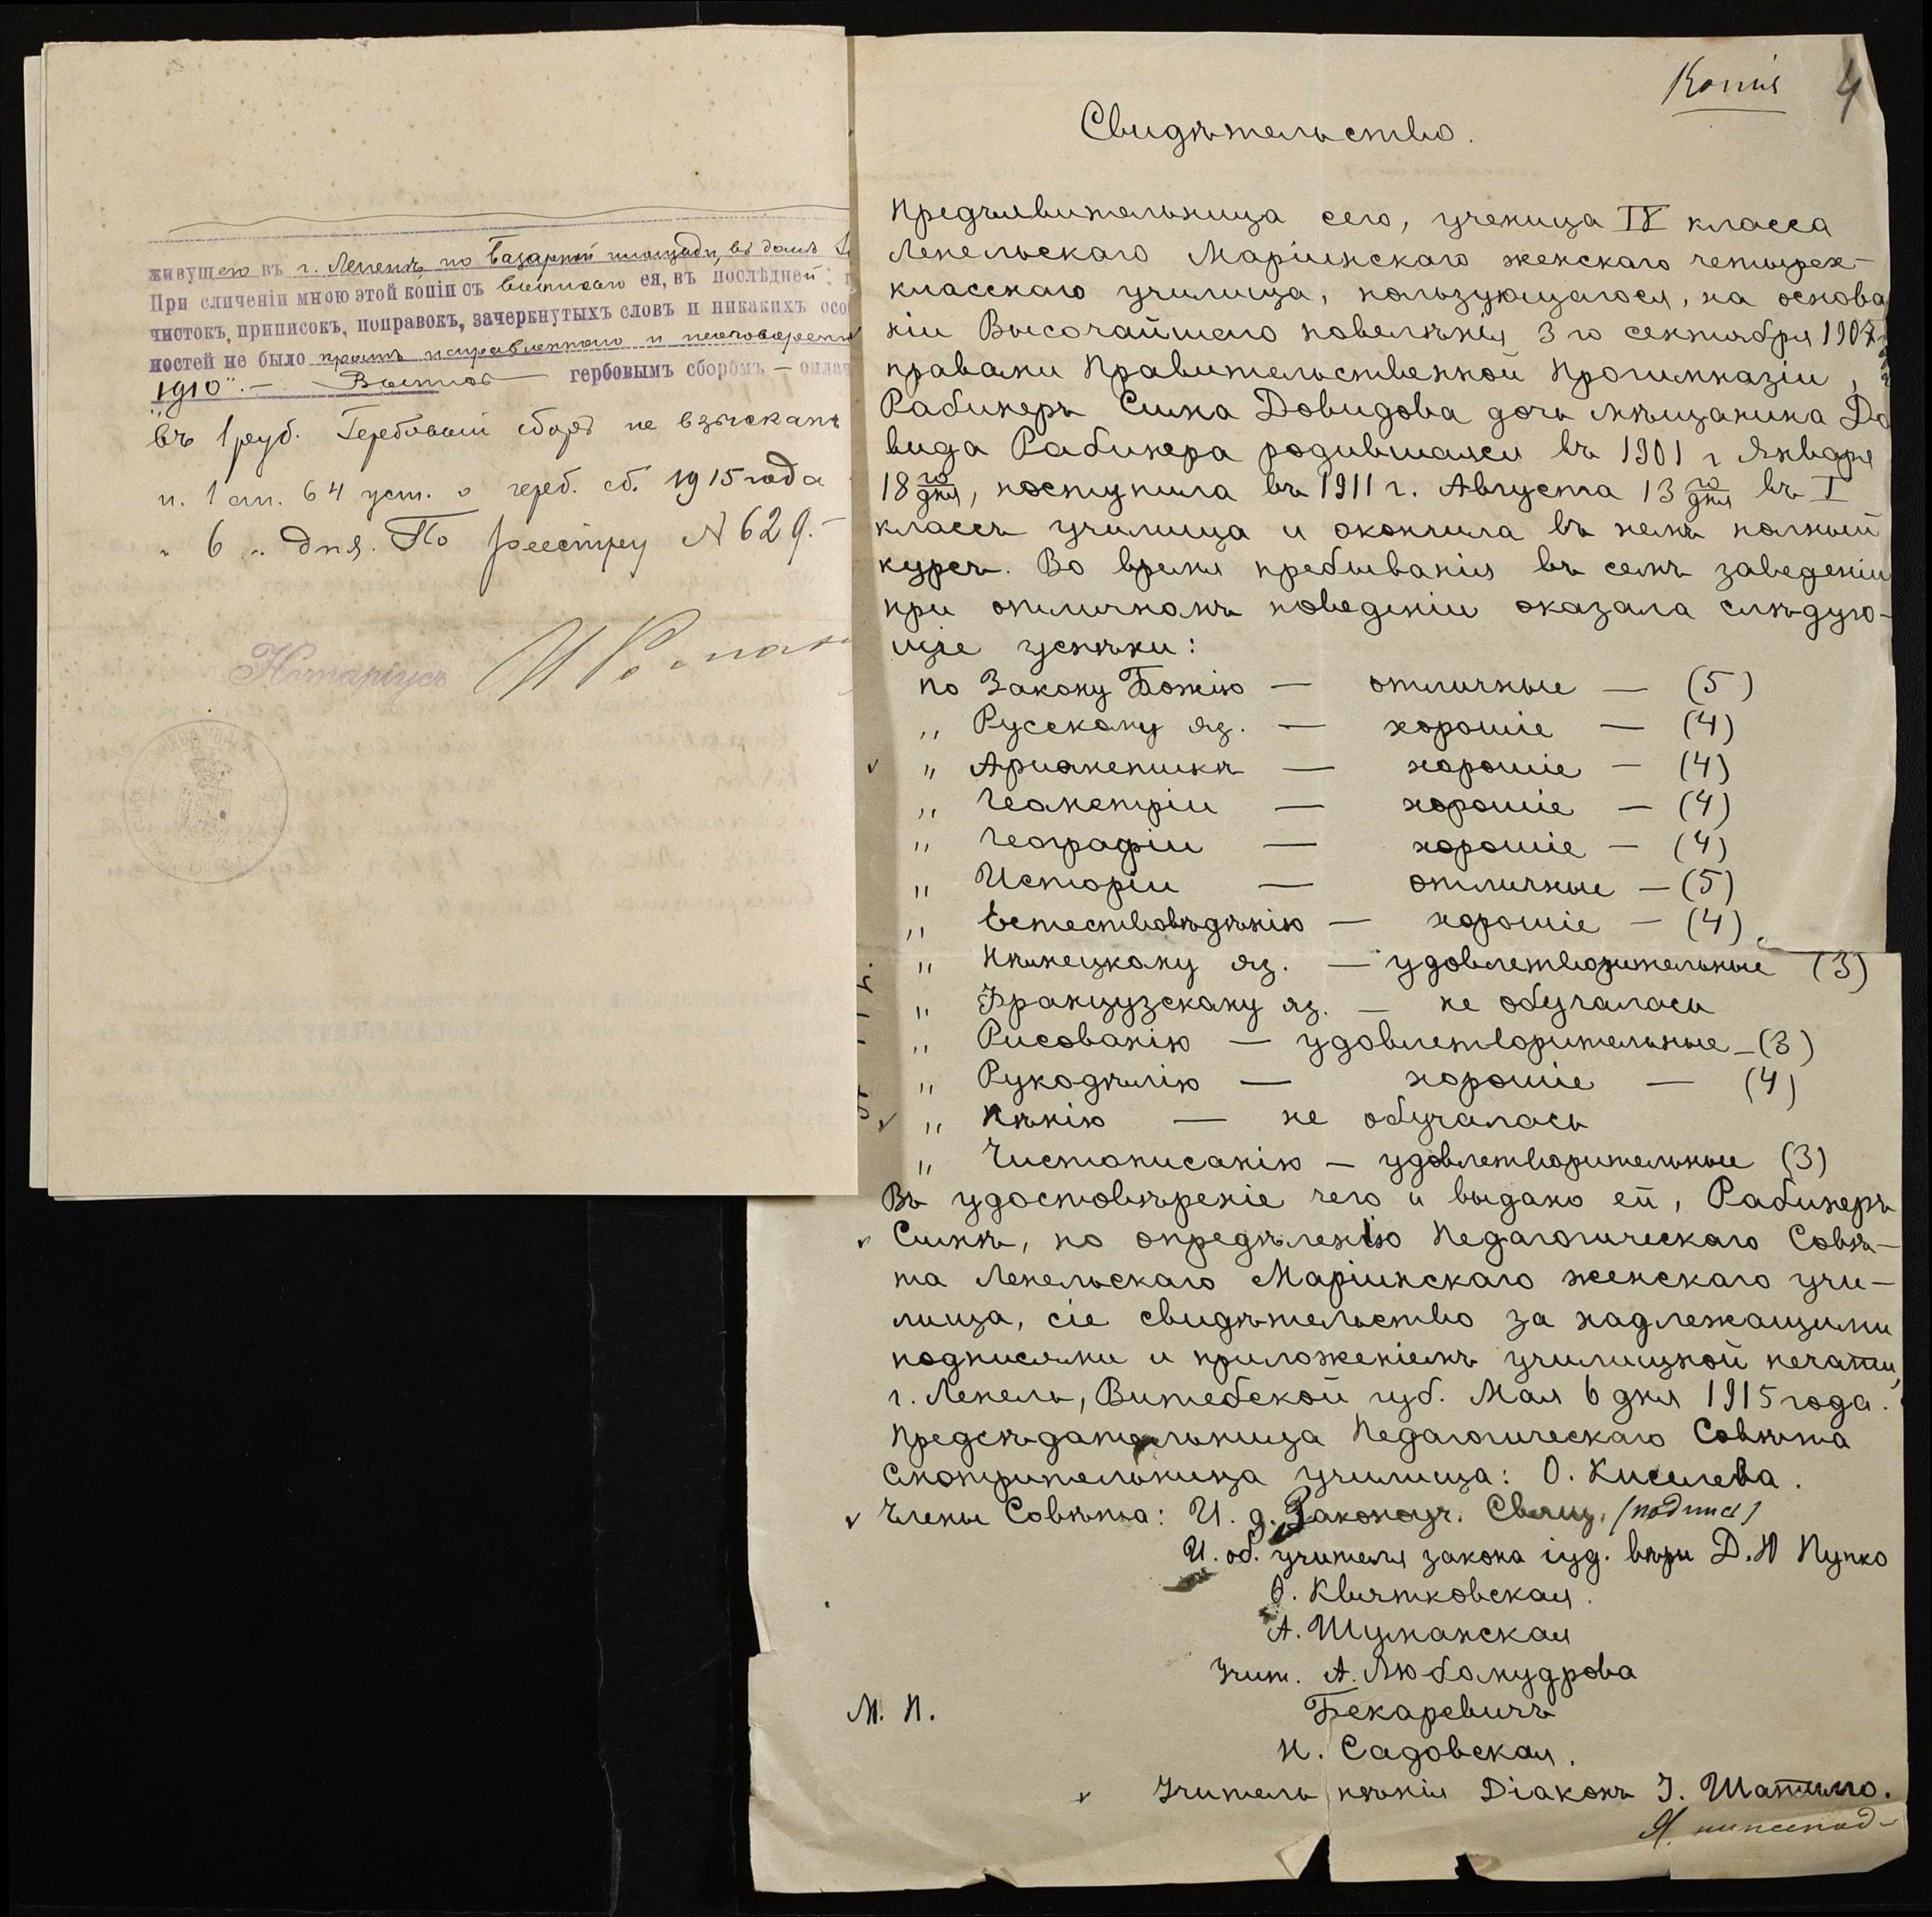 живущего въ г. Лепелѣ, по Базарной площади, въ домѣ
При сличеніи мною этой копіи съ выписью ея, въ послѣдней
чистокъ, приписокъ, поправокъ, зачеркнутыхъ словъ и никакихъ осо
ностей не было кромѣ исправленнаго и неоговореннаго
1910".— гербовымъ сборомъ — оплач
въ 1 руб. Гербовый сборъ не взысканъ
п. 1 ст. 64 уст. о герб. сб. 1915 года
" 6 " дня. По реестру N 629.—
Нотаріусъ
Копія 4
Свидѣтельство.
Предъявительница сего, ученица IV класса
Лепельскаго Маріинскаго женскаго четырех-
класснаго училища, пользующагося, на основа
ніи Высочайшаго повелѣнія 3го сентября 1907
правами Правительственной Прогимназіи,
Рабинеръ Сима Довидова дочь мѣщанина До
вида Рабинера родившаяся въ 1901 г Января
18го дня, поступила въ 1911 г. Августа 13го дня въ I
классъ училища и окончила въ немъ полный
курсъ. Во время пребыванія въ семъ заведеніи
при отличномъ поведеніи оказала слѣдую-
щіе успѣхи:
по Закону Божію — отличные — (5)
" Русскому яз. — хорошіе — (4)
" Ариѳметикѣ — хорошіе — (4)
" Геометріи — хорошіе — (4)
" Географіи — хорошіе — (4)
" Исторіи — отличные — (5)
" Естествовѣдѣнію — хорошіе — (4)
" Нѣмецкому яз. — удовлетворительные (3)
" Французскому яз. — не обучалась
" Рисованію — удовлетворительные — (3)
" Рукодѣлію — хорошіе — (4)
" Пѣнію — не обучалась
" Чистописанію — удовлетворительные (3)
Въ удостовѣреніе чего и выдано ей, Рабинеръ
Симѣ, по опредѣленію Педагогическаго Совѣ-
та Лепельскаго Маріинскаго женскаго учи-
лища, сіе свидѣтельство за надлежащими
подписями и приложеніемъ училищной печати,
г. Лепель, Витебской губ. Мая 6 дня 1915 года.
Предсѣдательница Педагогическаго Совѣта
Смотрительница училища: О. Киселева.
Члены Совѣта: И. д. Законоуч. Свящ. (подпись)
И. об. учителя закона іуд. вѣры Д. Ю Пупко
О. Квятковская.
А. Шуманская
Учит. А. Любомудрова
М. П. Бекаревичъ
Н. Садовская.
Учитель пѣнія Діаконъ І. Шатилло.
Я нижепод-